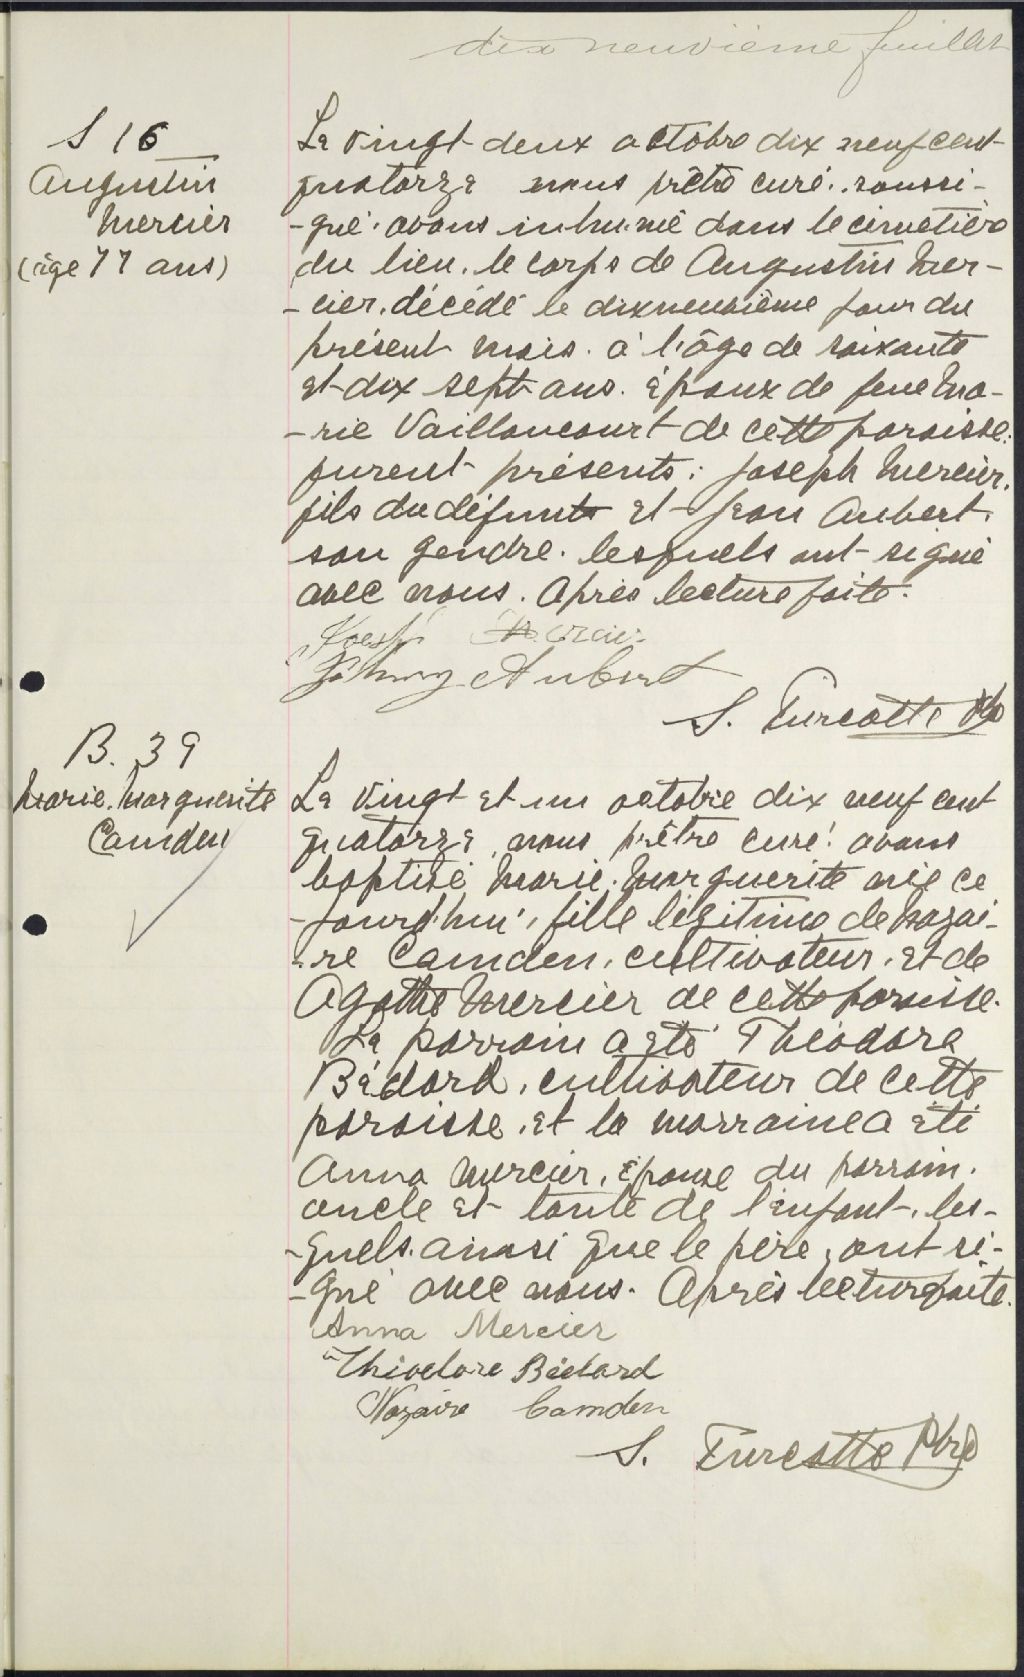 dix neuvième feuillet
S 16
Augustin
Mercier
(âge 77 ans)
Le vingt-deux octobre dix neuf cent-
quatorze nous prêtre curé soussi-
-gné, avons inhumé dans le cimetière
du lieu, le corps de Augustin Mer-
-cier, décédé le dixneuvième jour du
présent mois à l'âge de soixante
et-dix sept ans. époux de feue Ma-
-rie Vaillancourt de cette paroisse:
furent présents: Joseph Mercier,
fils du défunt et Jean Aubert,
son gendre. lesquels ont signé
avec nous. Après lecture faite.
Mercier
Johnny Aubert
S. Turcotte Ptre
B. 39
Marie. Marguerite
Camden
Le vingt et un octobre dix neuf cent
quatorze, nous prêtre curé avons
baptisé Marie. Marguerite née ce
-jourd'hui, fille légitime de Nazai-
-re Camden, cultivateur, et de
Agathe Mercier de cette paroisse.
Le parrain a été Théodore
Bédard, cultivateur de cette
paroisse, et la marraine a été
Anna Mercier, épouse du parrain.
oncle et tante de l'enfant, les-
-quels, ainsi que le père, ont si-
-gné avec nous. Après lecture faite.
Anna Mercier
Théodore Bédard
Nazaire Camden
S. Turcotte Ptre